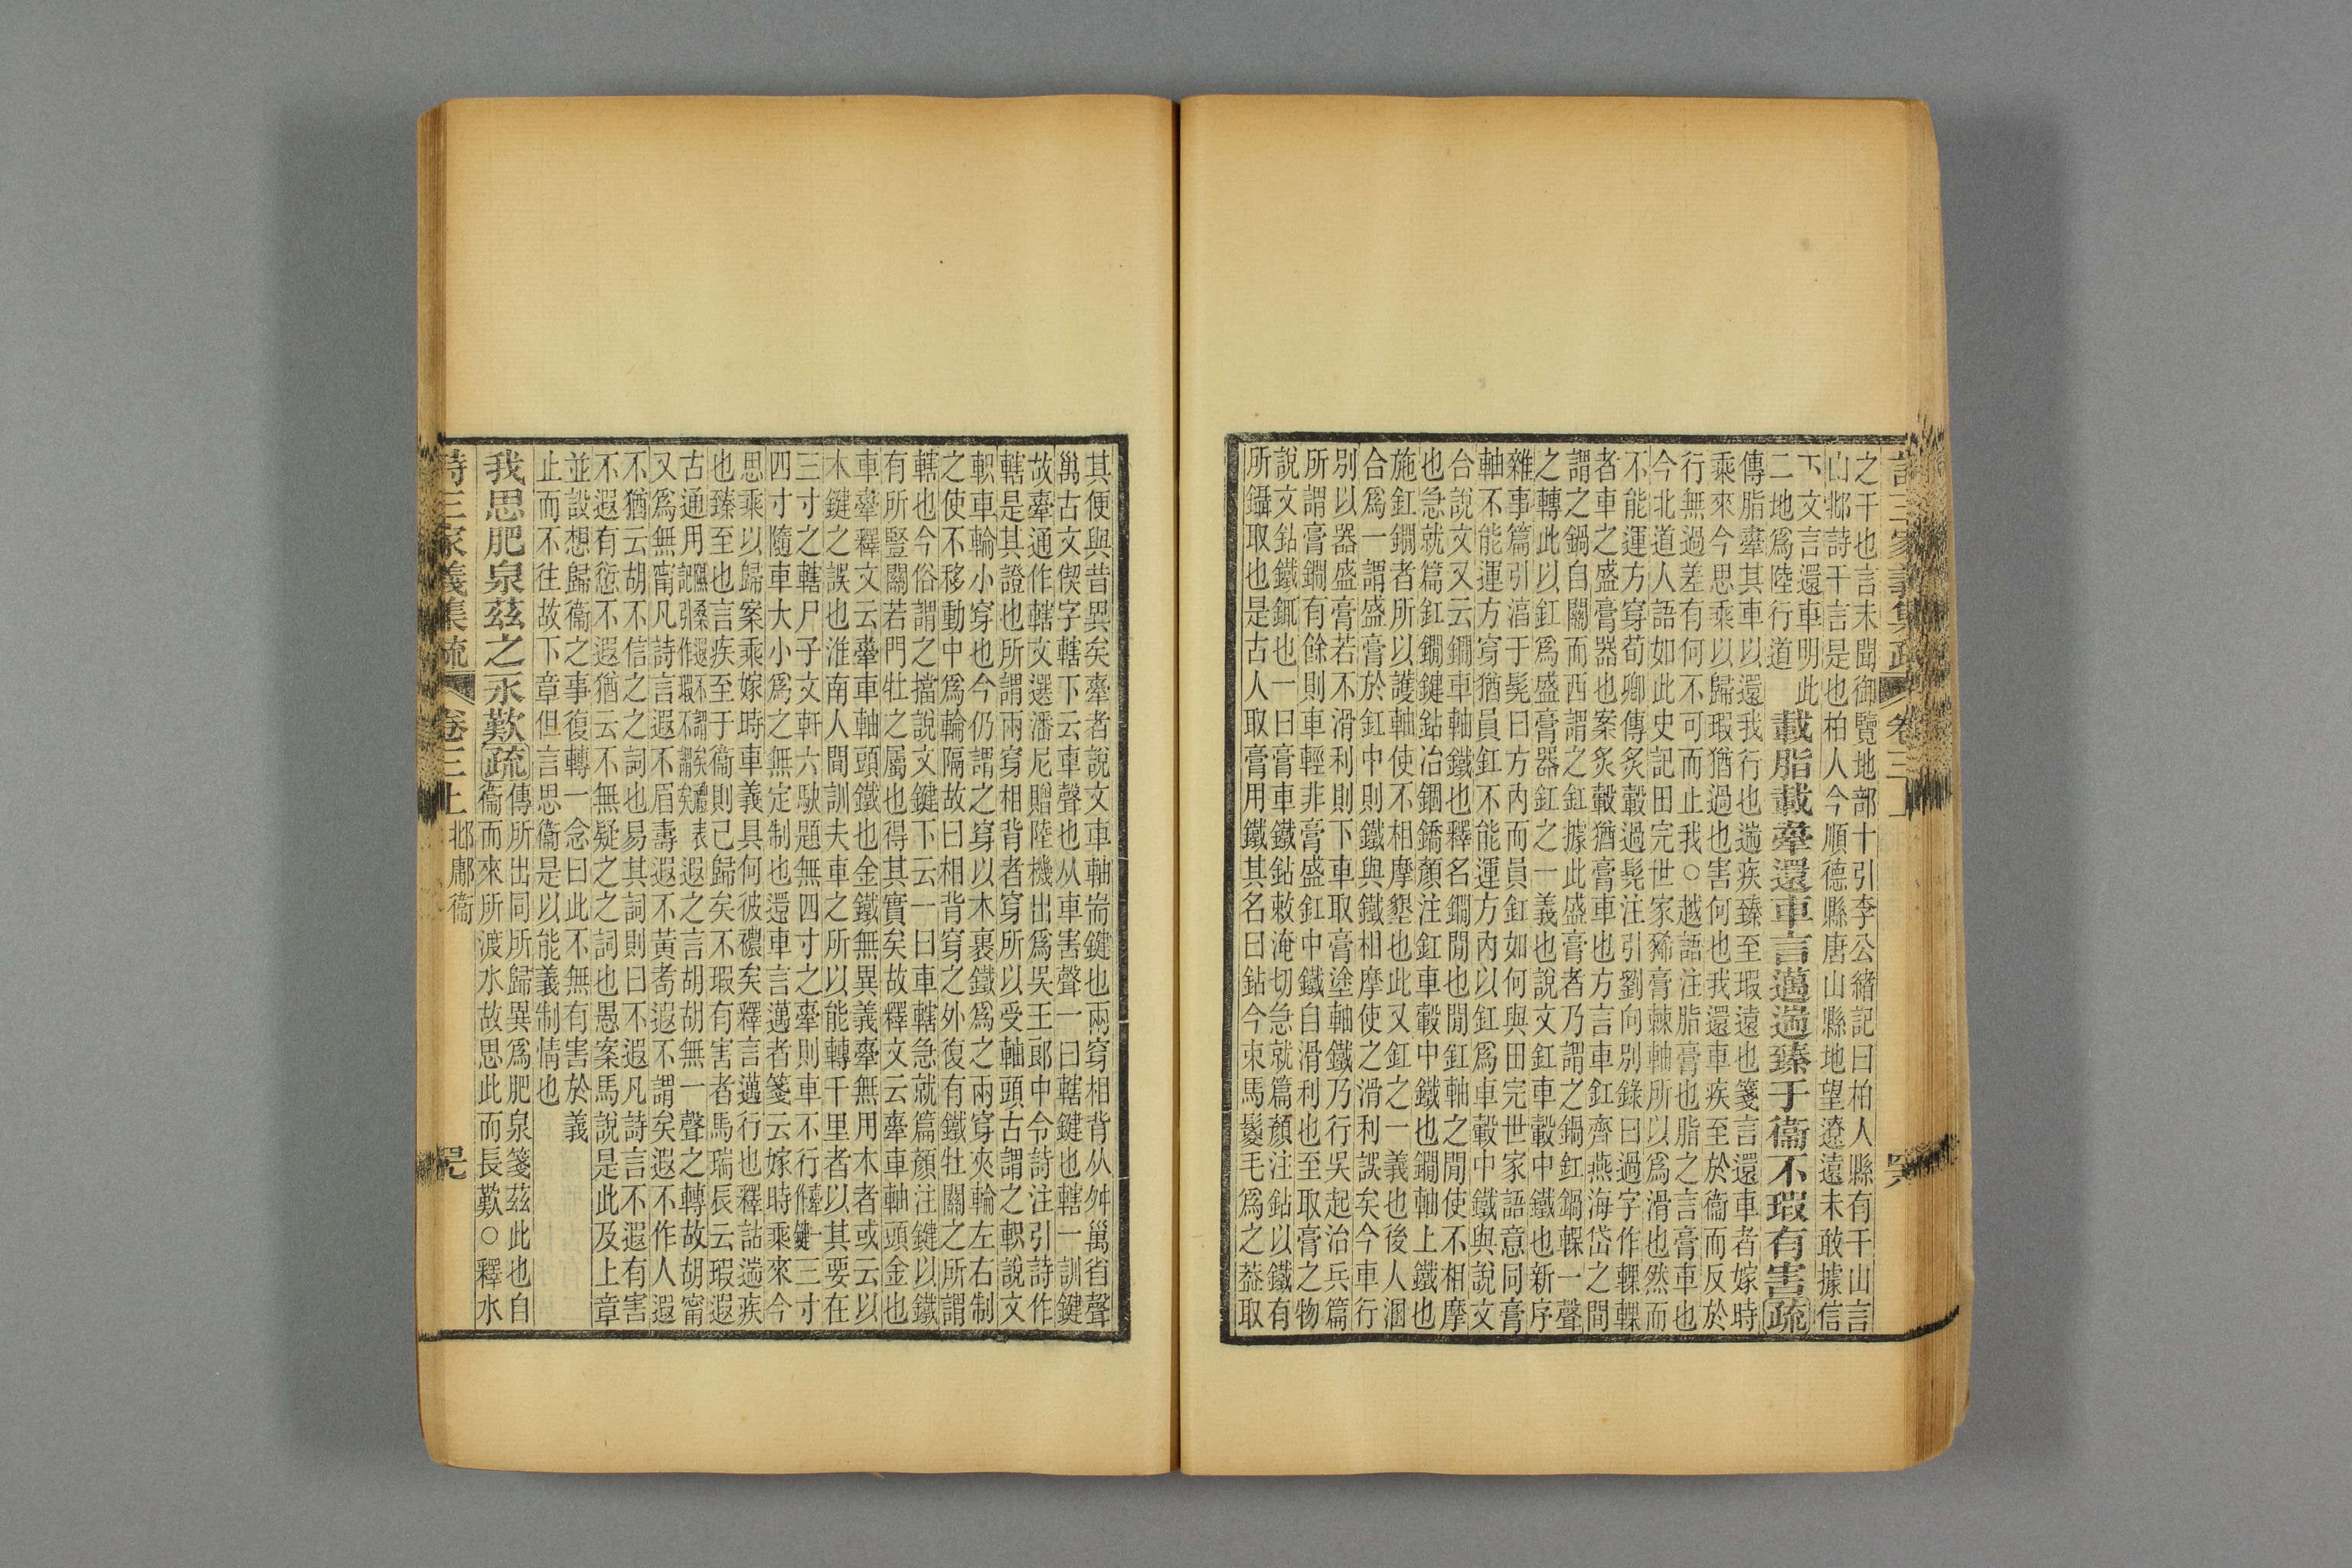 詩三家義集疏 卷三上
之干也言未聞御覽地部十引李公緒記曰柏人縣有干山言
山邶詩干言是也柏人今順德縣唐山縣地望遼遠未敢據信
下文言還車明此
二地爲陸行道
載脂載舝還車言邁遄臻于衞不瑕有害疏
傳脂舝其車以還我行也遄疾臻至瑕遠也箋言還車者嫁時
乘來今思乘以歸瑕猶過也害何也我還車疾至於衞而反於
行無過差有何不可而止我○越語注脂膏也脂之言膏車也
今北道人語如此史記田完世家豨膏棘軸所以爲滑也然而
不能運方穿荀卿傳炙轂過髡注引劉向別錄曰過字作輠輠
者車之盛膏器也案炙轂猶膏車也方言車釭齊燕海岱之間
謂之鍋自關而西謂之釭據此盛膏者乃謂之鍋釭鍋輠一聲
之轉此以釭爲盛膏器釭之一義也說文釭車轂中鐵也新序
雜事篇引淳于髡曰方內而員釭如何與田完世家語意同膏
軸不能運方穿猶員釭不能運方內以釭爲車轂中鐵與說文
合說文又云鐧車軸鐵也釋名鐧間也間釭軸之間使不相摩
也急就篇釭鐧鍵鉆冶錮鐈顏注釭車轂中鐵也鐧軸上鐵也
施釭鐧者所以護軸使不相摩墾也此又釭之一義也後人溷
合爲一謂盛膏於釭中則鐵與鐵相摩使之滑利誤矣今車行
別以器盛膏若不滑利則下車取膏塗軸鐵乃行吳起治兵篇
所謂膏鐧有餘則車輕非膏盛釭中鐵自滑利也至取膏之物
說文鉆鐵銸也一曰膏車鐵鉆敕淹切急就篇顏注鉆以鐵有
所鑷取也是古人取膏用鐵其名曰鉆今束馬鬉毛爲之葢取
其便與昔異矣舝者說文車軸耑鍵也兩穿相背从舛𥜿省聲
𥜿古文偰字轄下云車聲也从車害聲一曰轄鍵也轄一訓鍵
故舝通作轄文選潘尼贈陸機出爲吳王郎中令詩注引詩作
轄是其證也所謂兩穿相背者穿所以受軸頭古謂之軹說文
軹車輪小穿也今仍謂之穿以木裹鐵爲之兩穿夾輪左右制
之使不移動中爲輪隔故曰相背穿之外復有鐵牡關之所謂
轄也今俗謂之擋說文鍵下云一曰車轄急就篇顏注鍵以鐵
有所豎關若門牡之屬也得其實矣故釋文云舝車軸頭金也
車舝釋文云舝車軸頭鐵也金鐵無異義舝無用木者或云以
木鍵之誤也淮南人間訓夫車之所以能轉千里者以其要在
三寸之轄尸子文軒六駃題無四寸之舝則車不行舝一作鍵三寸
四寸隨車大小爲之無定制也還車言邁者箋云嫁時乘來今
思乘以歸案乘嫁時車義具何彼襛矣釋言邁行也釋詁遄疾
也臻至也言疾至于衞則己歸矣不瑕有害者馬瑞辰云瑕遐
古通用隰桑遐不謂矣禮表記引作瑕不謂矣遐之言胡胡無一聲之轉故胡甯
又爲無甯凡詩言遐不眉壽遐不黃耇遐不謂矣遐不作人遐
不猶云胡不信之之詞也易其詞則曰不遐凡詩言不遐有害
不遐有愆不遐猶云不無疑之之詞也愚案馬說是此及上章
並設想歸衞之事復轉一念曰此不無有害於義
止而不往故下章但言思衞是以能義制情也
我思肥泉茲之永歎疏
傳所出同所歸異爲肥泉箋茲此也自
衞而來所渡水故思此而長歎○釋水
詩三家義集疏 卷三上 邶鄘衞